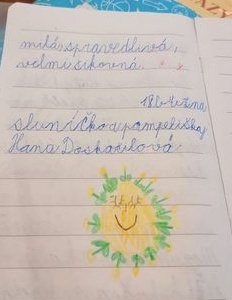 milá spravedlivá,
velmi šikovná.
18. března
sluníčko a pampeliška
Hana Doskočilová